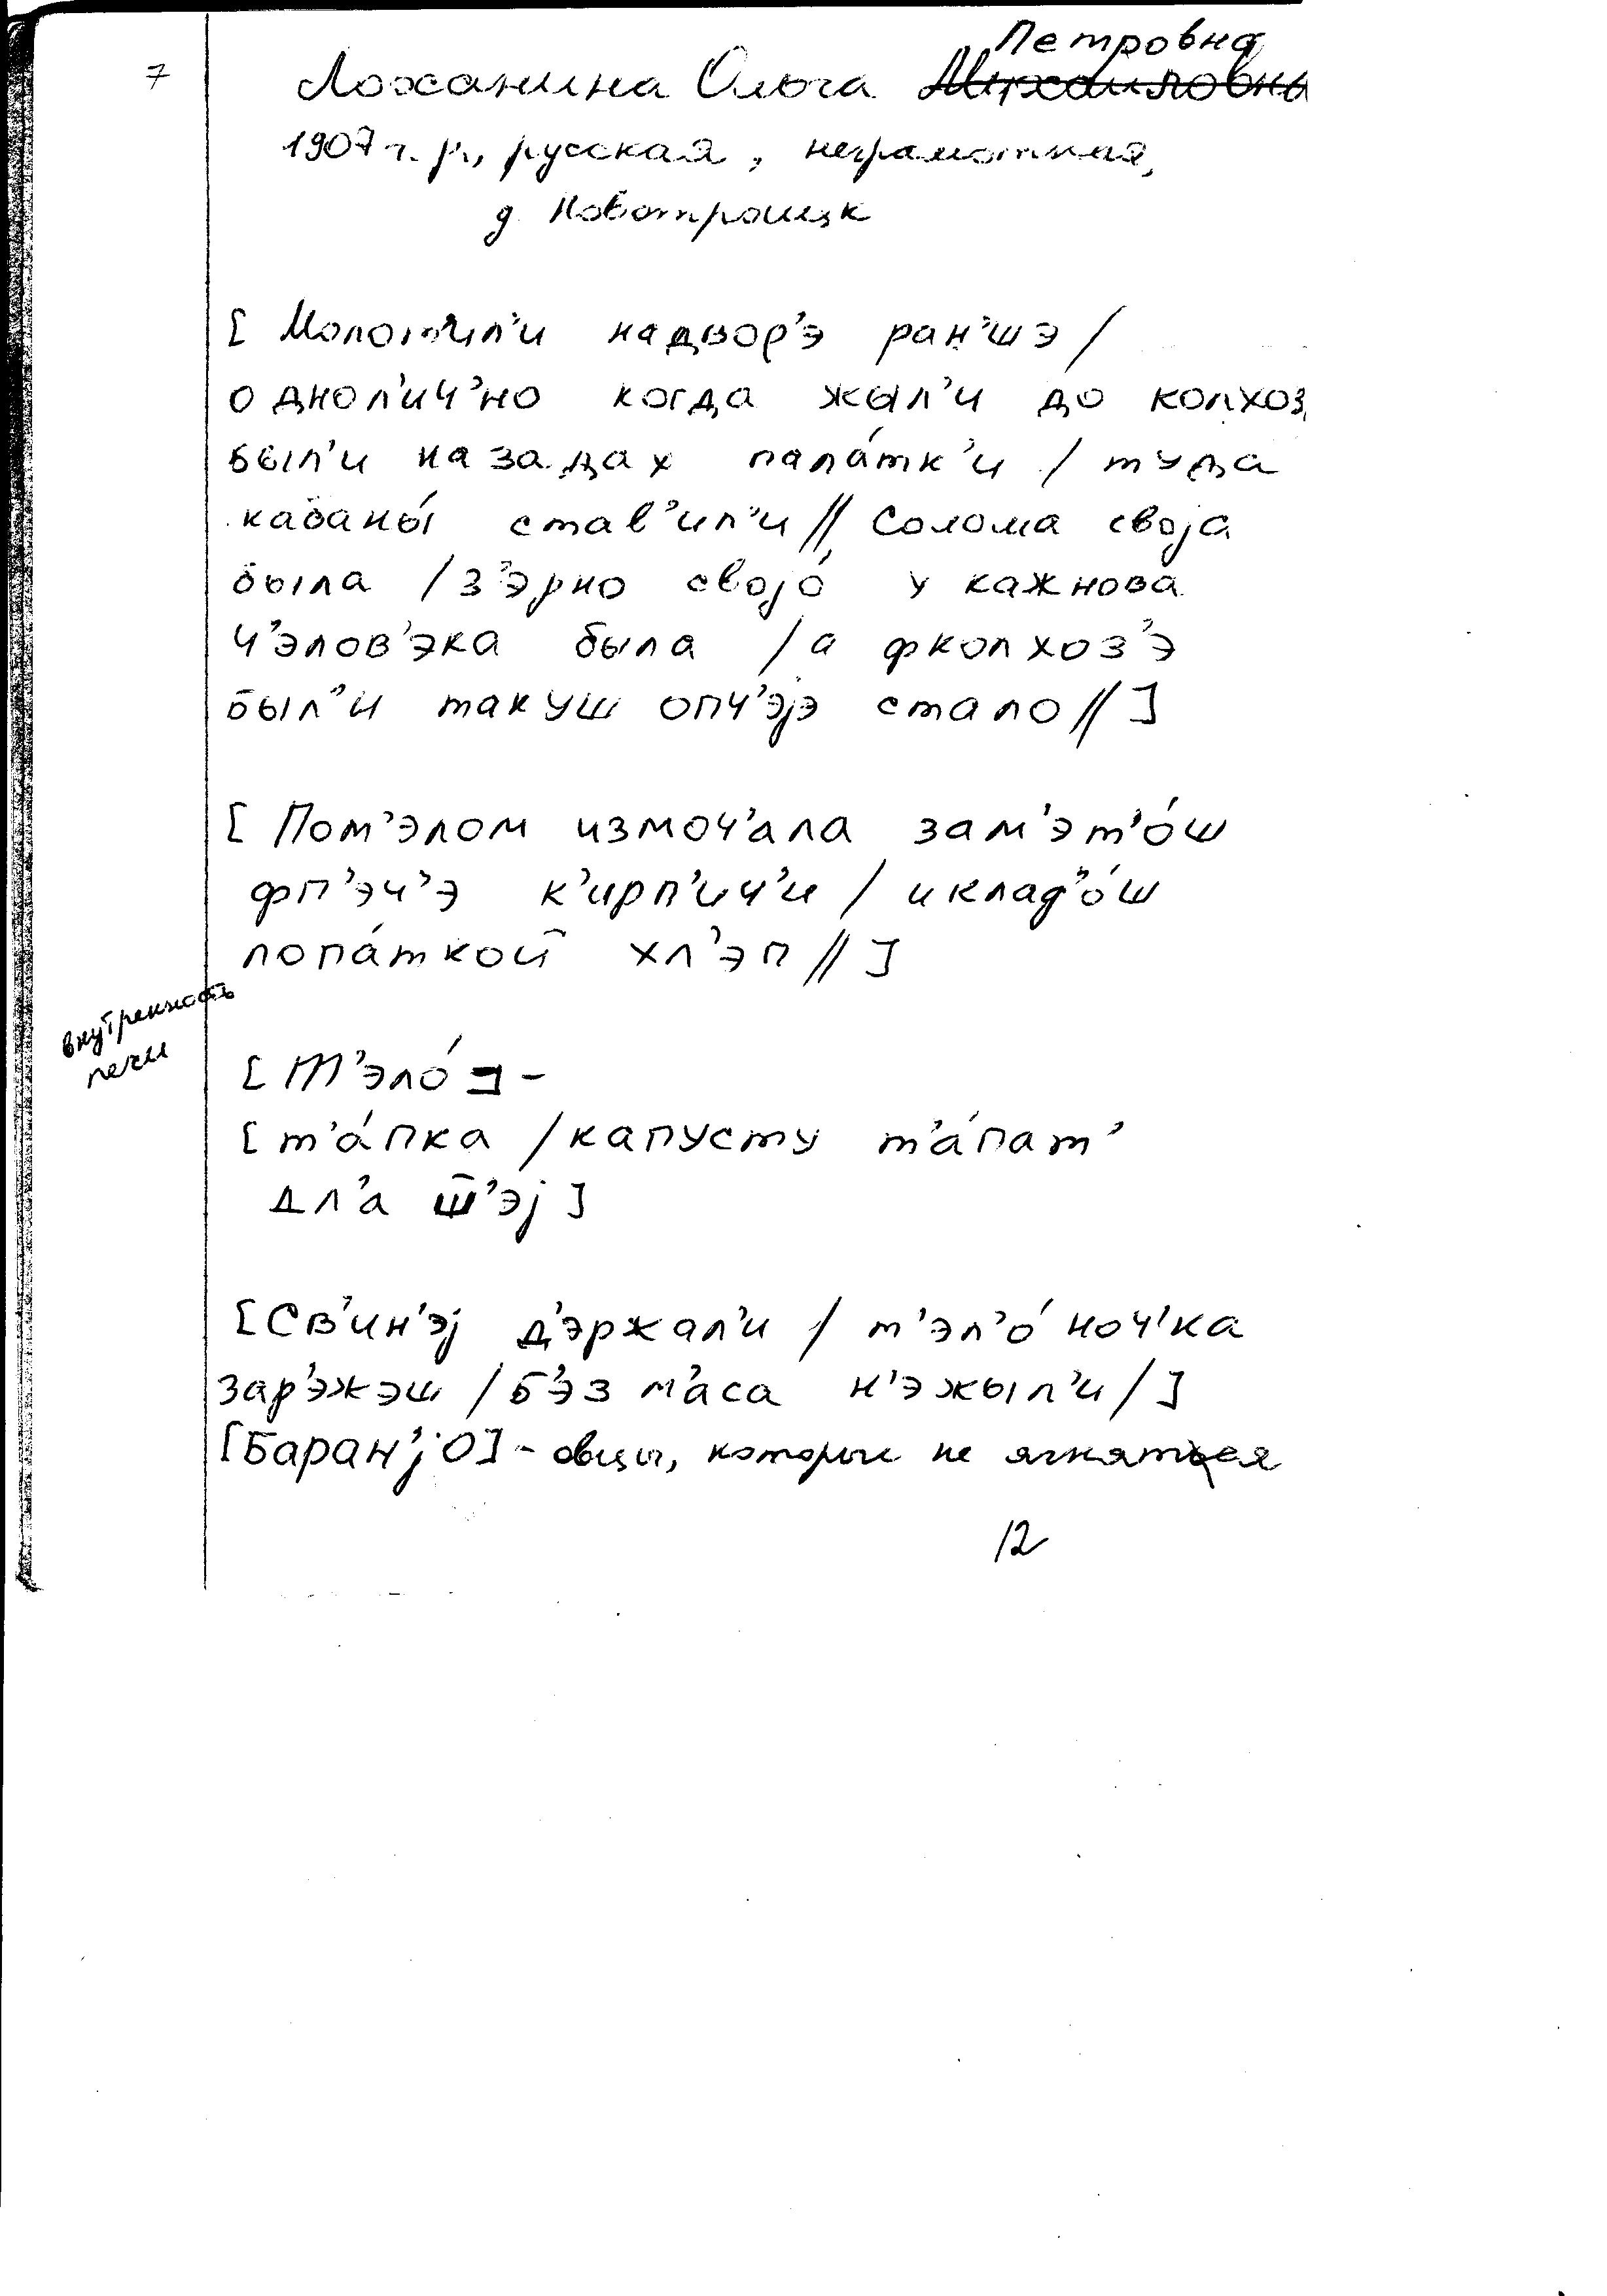 7
Петровна
Лоханина Ольга Михайловна
1907 г. р., русская, неграмотная,
д. Новотроицк
[ Молот'ил'и надвор'э ран'шэ /
однол'ич'но когда жыл'и до колхоз
был'и на задах пала́тк'и / туда
кабаны́ став'ил'и // солома своjа
была / з'эрно своjо́ у кажнова
ч'элов'эка была / а фколхоз'э
был'и такуш опч'эjэ стало // ]
[ Пом'элом измоч'ала зам'эт'о́ш
фп'эч'э к'ирп'ич'и / и клад'о́ш
лопа́ткой хл'эп // ]
внутренность
печи
[ Т'эло́ ] -
[ т'а́пка / капусту т'а́пат'
дл'а ш̅'эj ]
[ Св'ин'эj д'эржал'и / т'эл'о́ноч'ка
зар'эжэш / б'эз м'аса н'эжыл'и / ]
[Баран'jо] - овцы, которые не ягнятся
12